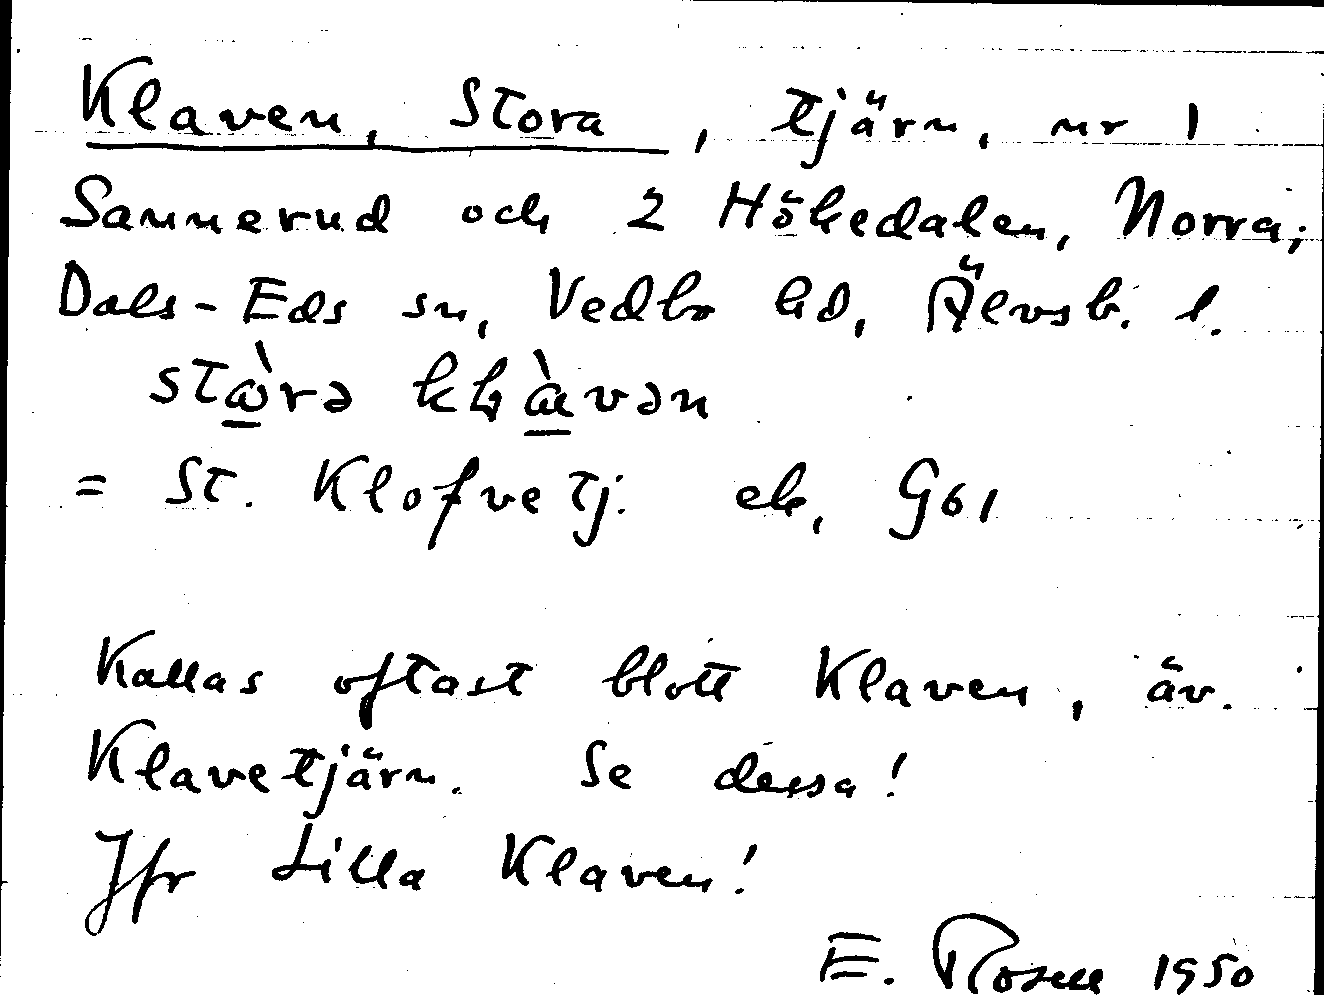 Klaven, Stora, tjärn, nr 1
Sannerud och 2 Hökedalen, Norra;
Dals-Eds sn, Vedbo hd, Älvsb. l.
= St. Klofvetj. ek, G61
Kallas oftast blott Klaven, äv.
Klavetjärn. Se dessa!
Jfr Lilla Klaven!
E. Rosell 1950